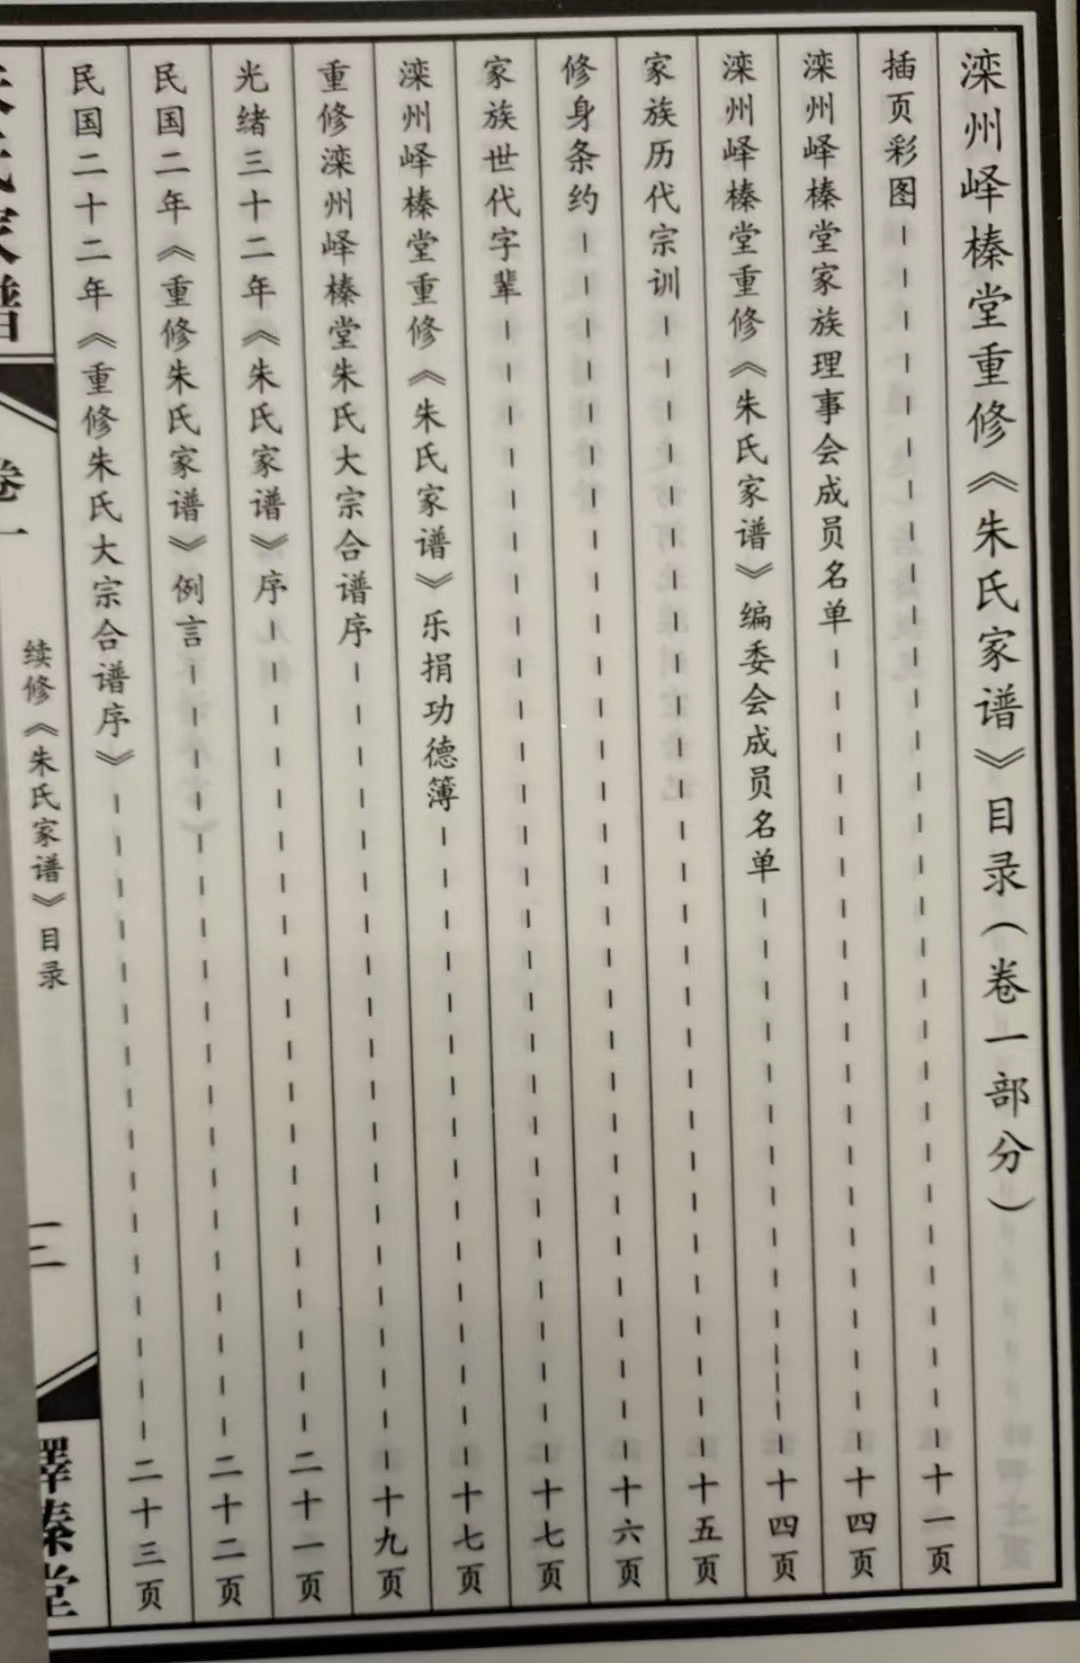 滦州峄榛堂重修《朱氏家谱》目录（卷一部分）
插页彩图----------------------------十一页
滦州峄榛堂家族理事会成员名单-------------------十四页
滦州峄榛堂重修《朱氏家谱》编委会成员名单-------------十四页
家族历代宗训--------------------------十五页
修身条约----------------------------十六页
家族世代字辈--------------------------十七页
滦州峄榛堂重修《朱氏家谱》乐捐功德簿---------------十七页
重修滦州峄榛堂朱氏大宗合谱序-------------------十九页
光绪三十二年《朱氏家谱》序--------------------二十一页
民国二年《重修朱氏家谱》例言-------------------二十二页
民国二十二年《重修朱氏大宗合谱序》----------------二十三页
家谱
卷一
续修《朱氏家谱》目录
三
堂